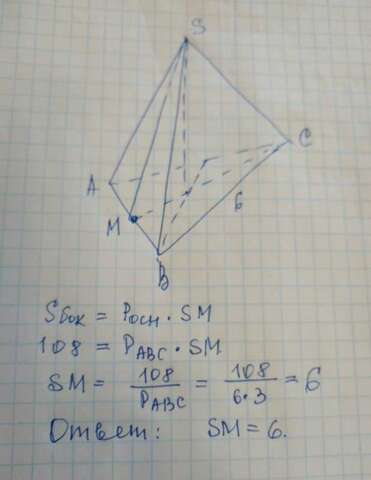 S
A
C
M
6
B
Sбок = Pосн · SM
108 = PABC · SM
SM = 108/PABC = 108/6·3 = 6
Ответ: SM = 6.